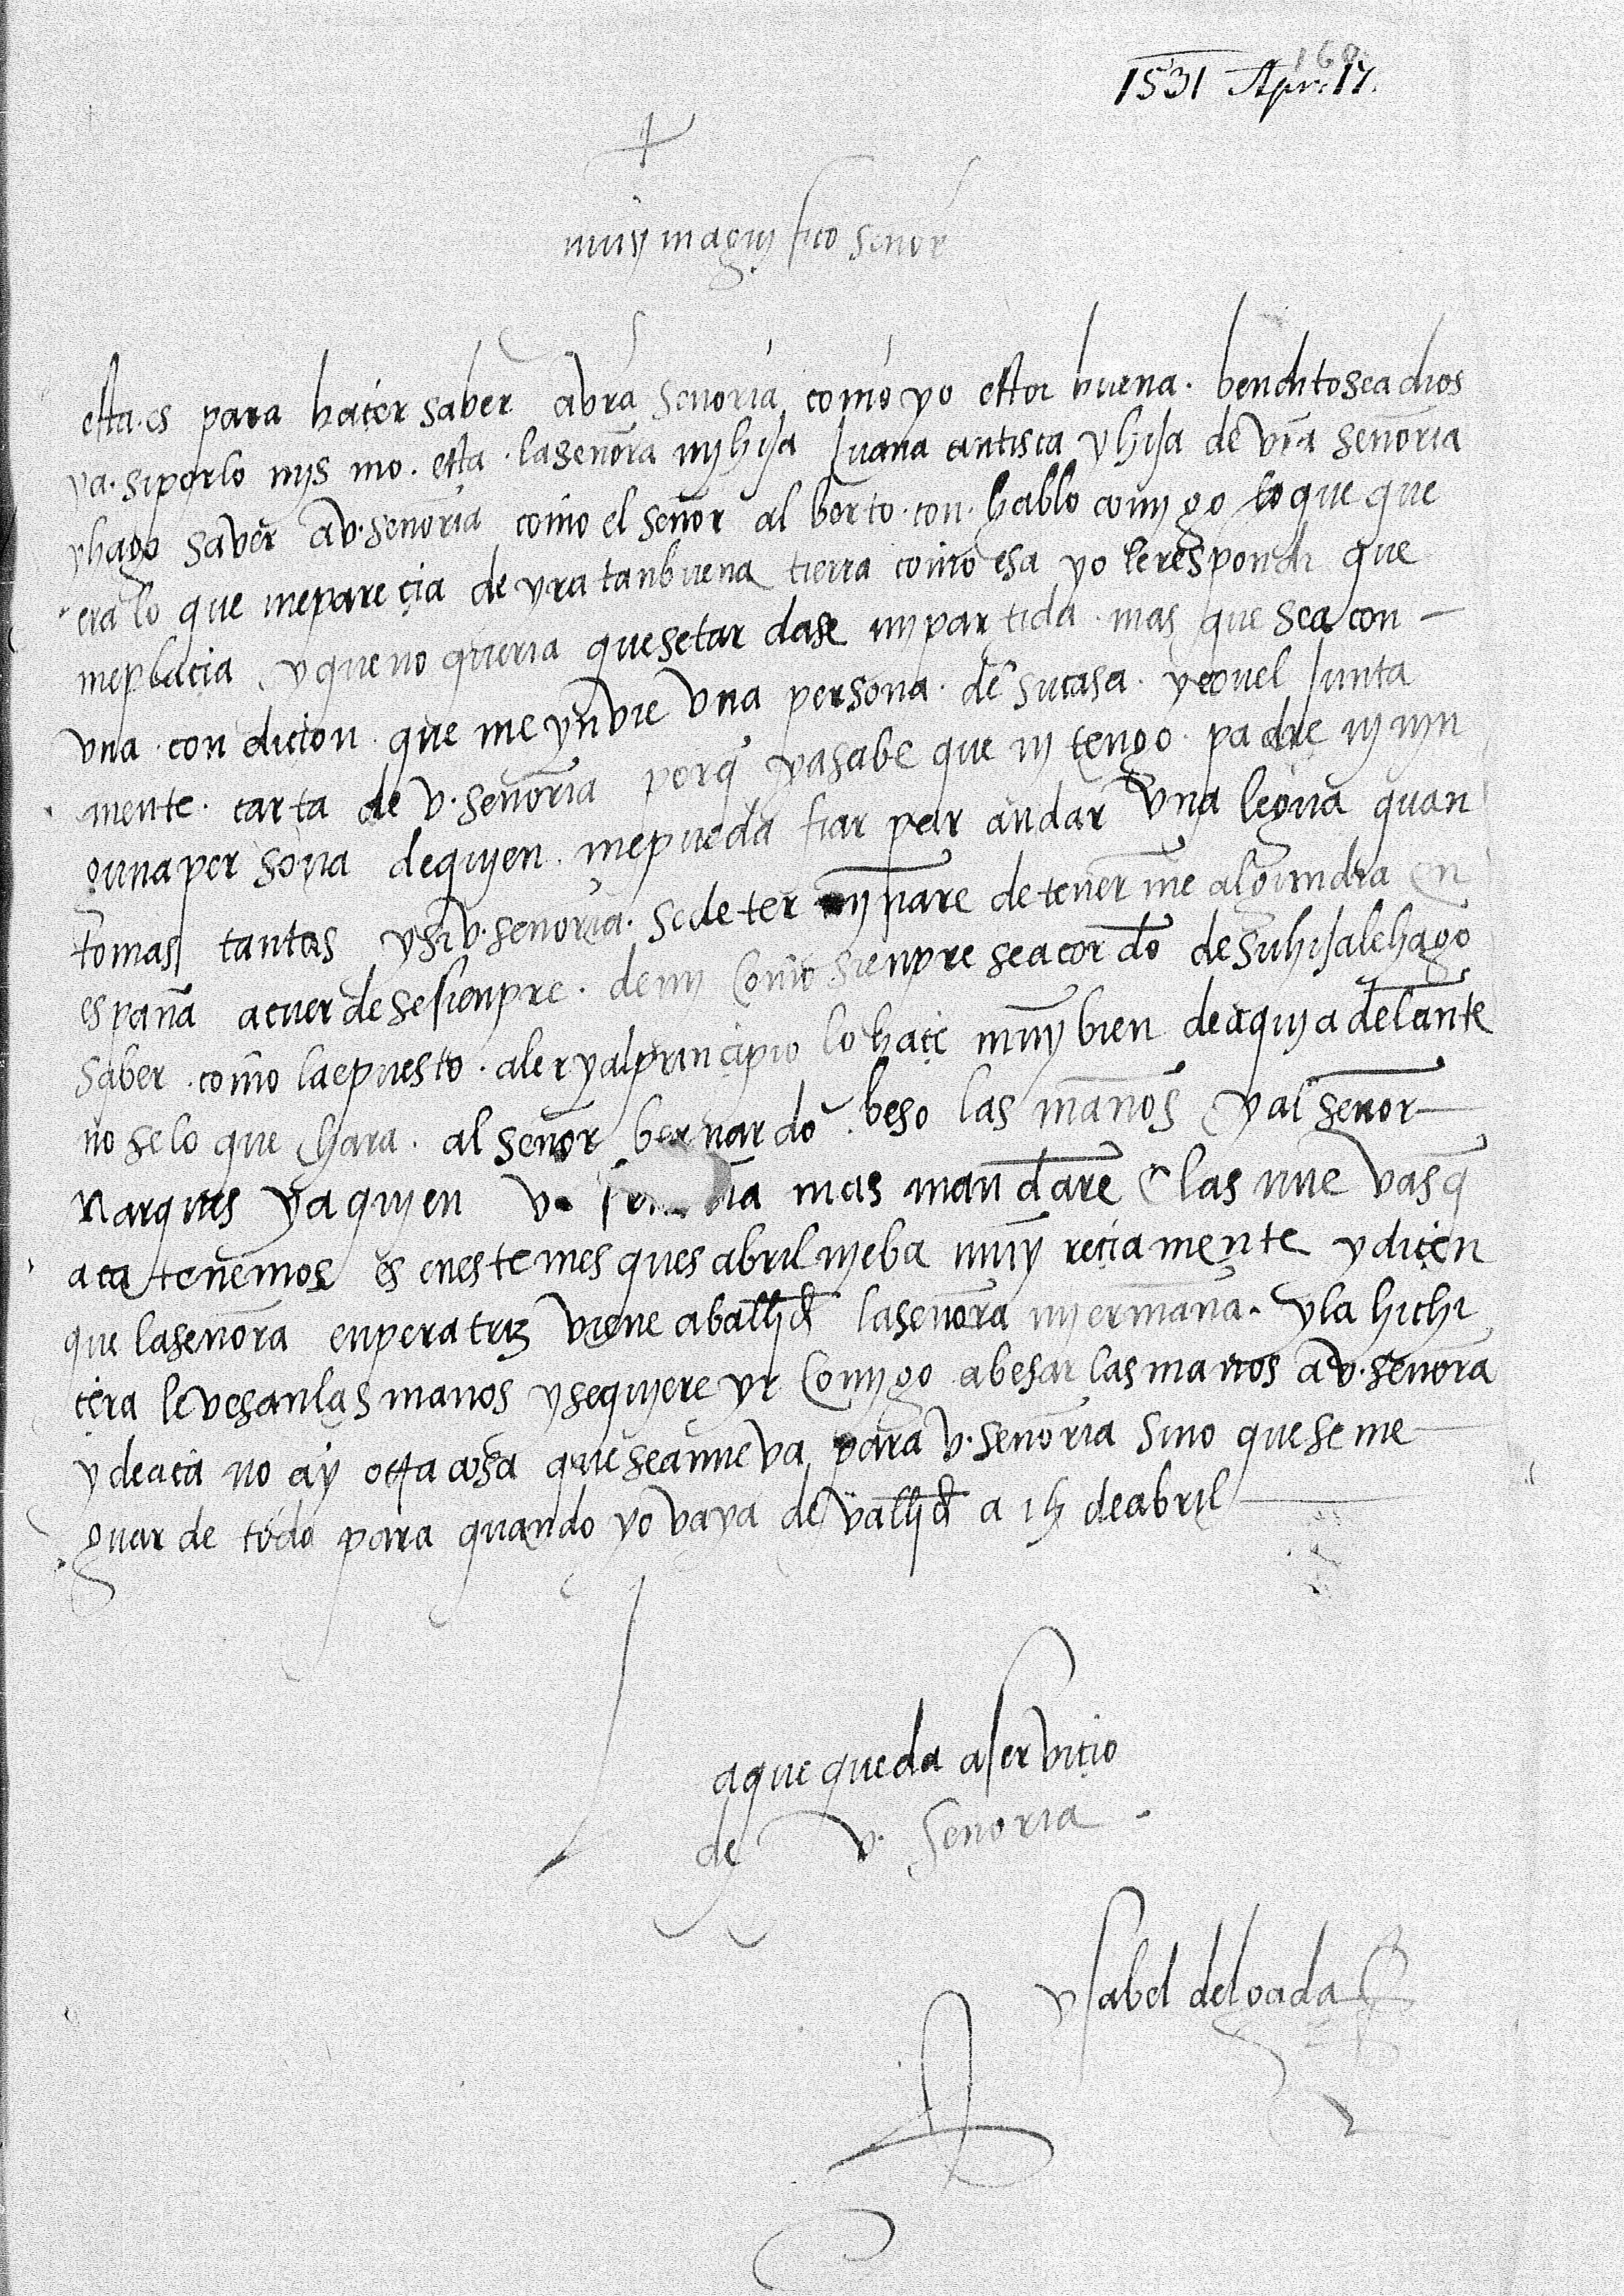 168
1531 Apr. 17.
+
muy magnyfico señor
esta es para haçer saber a bra señoria como yo estoi buena. bendito sea dios
ya. si por lo mysmo. esta. la señora my hija Juana cantisca y hija de vra señoria
y hago saver a v. señoria como el señor alberto. con. hablo comygo lo que que
era lo que me pareçia de yr a tan buena tierra como esa yo le respondi que
me plaçia y que no queria que se tardase my partida. mas que sea con
vna. condiçion. que me ynvie vna persona. de su casa. y con el Junta
mente. carta de v. señoria porq ya sabe que ny tengo. padre ny nyn
guna persona de quyen. me pueda fiar par andar vna legua quan
to mas tantas y si v. señoria. se determynare detenerme algun dia en
españa acuerdese sienpre. de my como sienpre se acordo de su hija le hago
saber. como la e puesto. a leer y al principio lo haçe muy bien de aquy adelante
no se lo que hara. al señor bernardo. beso las manos y al señor
Marques y a quyen v. mas mandare e las nuevas q
aca tenemos es en este mes ques abril nyeba muy reçiamente y diçen
que la señora enperatriz viene a ballid la señora my ermana. y la hichi
çera le vesan las manos y se quyere yr comygo a besar las manos a v. señora
y de aca no ay otta cosa que sea nueva para v. señoria sino que se me
guarde todo para quando yo vaya de vallid a 17 de abril
a que queda a serviçio
de v. señoria.
ysabel delgada